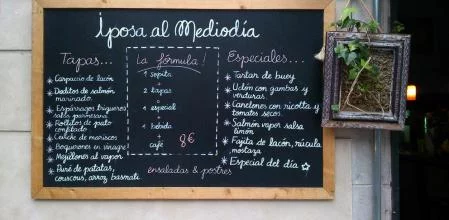 Iposa al Mediodía
Tapas...
* Carpacio de lacón
* Daditos de salmón
marinado.
* Espárragos trigueros
salsa parmesana
* Rollitos de pato
confitado
* Cebiche de mariscos
* Boquerones en vinagre
* Mejillones al vapor
* Puré de patatas,
couscous, arroz basmati
La fórmula!
1 sopita
+
2 tapas
+
1 especial
+
1 bebida
café 8€
Especiales...
* Tartar de buey
* Udón con gambas y
verduras
* Canelones con ricotta y
tomates secos.
* Salmón vapor salsa
limón
* Fajita de lacón, rúcula
mostaza
* Especial del día
ensaladas & postres